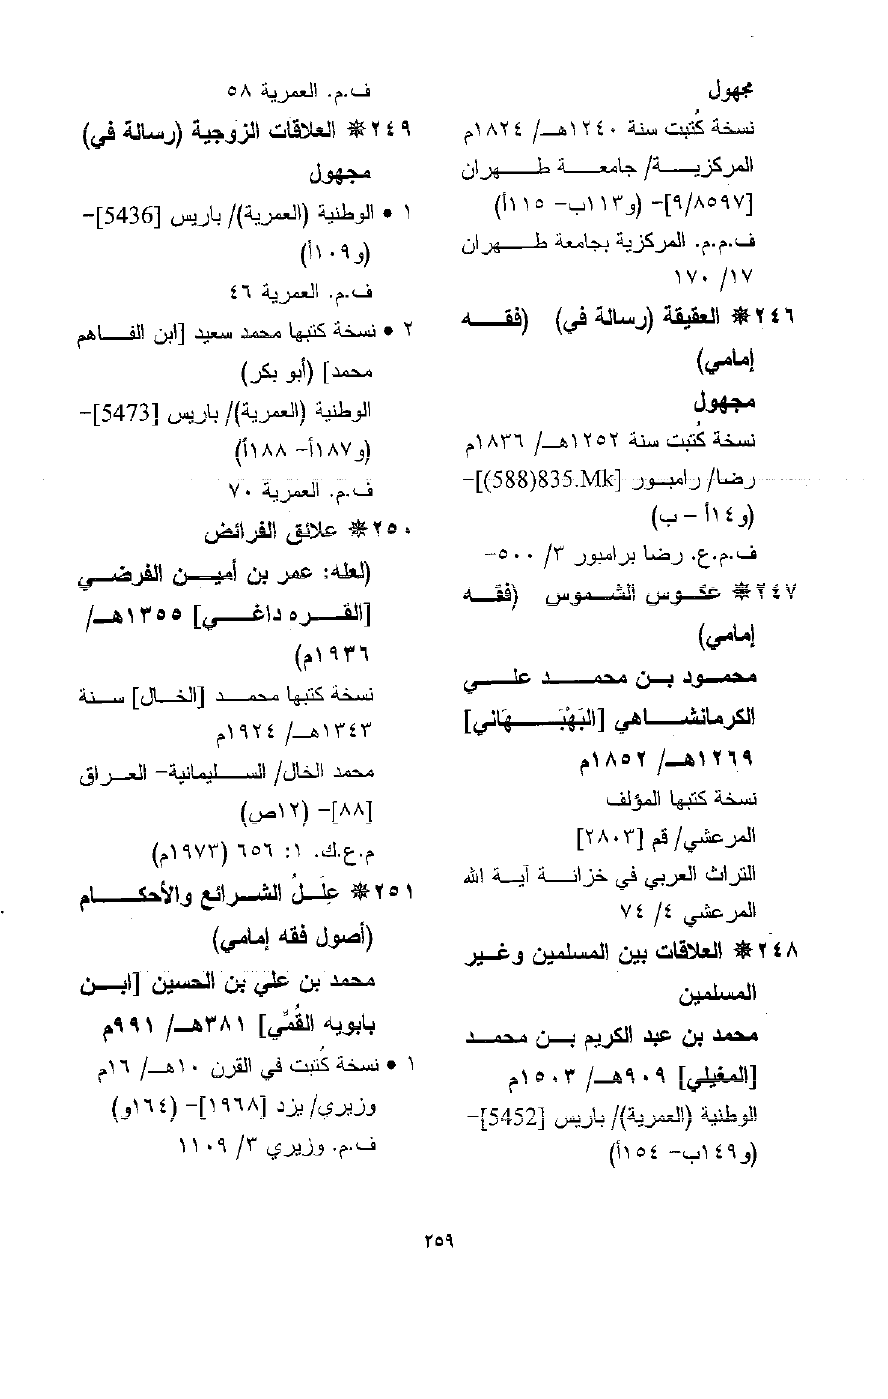 مجهول
نسخة كُتبت سنة ١٢٤٠هـ/ ١٨٢٤م
المركزية/ جامعة طهران
[٩/٨٥٩٧]- (و١١٣ب- ١١٥أ)
ف.م.م. المركزية بجامعة طهران
١٧/ ١٧٠
٢٤٦ * العقيقة (رسالة في) (فقه
إمامي)
مجهول
نسخة كُتبت سنة ١٢٥٢هـ/ ١٨٣٦م
رضا/ رامبور [835.Mk(588)]-
(و١٤أ - ب)
ف.م.ع. رضا برامبور ٣/ ٥٠٠-
٢٤٧ * عكوس الشموس (فقه
إمامي)
محمود بن محمد علي
الكرمانشاهي [البَهْبَهَاني]
١٢٦٩هـ/ ١٨٥٢م
نسخة كتبها المؤلف
المرعشي/ قم [٢٨٠٣]
التراث العربي في خزانة آية الله
المرعشي ٤/ ٧٤
٢٤٨ * العلاقات بين المسلمين وغير
المسلمين
محمد بن عبد الكريم بن محمد
[المغيلي] ٩٠٩هـ/ ١٥٠٣م
الوطنية (العمرية)/ باريس [5452]-
(و١٤٩ب- ١٥٤أ)
ف.م. العمرية ٥٨
٢٤٩ * العلاقات الزوجية (رسالة في)
مجهول
١ • الوطنية (العمرية)/ باريس [5436]-
(و١٠٩أ)
ف.م. العمرية ٤٦
٢ • نسخة كتبها محمد سعيد [ابن الفاهم
محمد] (أبو بكر)
الوطنية (العمرية)/ باريس [5473]-
(و١٨٧أ- ١٨٨أ)
ف.م. العمرية ٧٠
٢٥٠ * علائق الفرائض
(لعله: عمر بن أمين الفرضي
[القره داغي] ١٣٥٥هـ/
١٩٣٦م)
نسخة كتبها محمد [الخال] سنة
١٣٤٣هـ/ ١٩٢٤م
محمد الخال/ السليمانية- العراق
[٨٨]- (١٢ص)
م.ع.ك. ١: ٦٥٦ (١٩٧٣م)
٢٥١ * عِلَلُ الشرائع والأحكام
(أصول فقه إمامي)
محمد بن علي بن الحسين [ابن
بابويه القُمِّي] ٣٨١هـ/ ٩٩١م
١ • نسخة كُتبت في القرن ١٠هـ/ ١٦م
وزيري/ يزد [١٩٦٨]- (١٦٤و)
ف.م. وزيري ٣/ ١١٠٩
٢٥٩